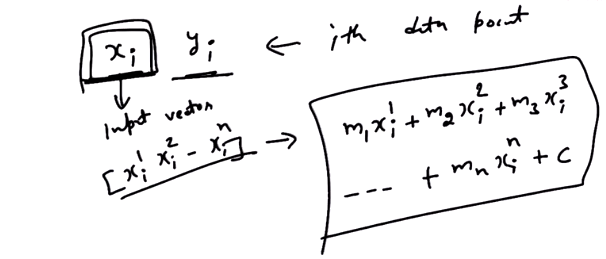 xᵢ yᵢ ← ith data point
Input vector
[xᵢ¹ xᵢ² - xᵢⁿ] →
m₁xᵢ¹ + m₂xᵢ² + m₃xᵢ³
---- + mₙxᵢⁿ + c